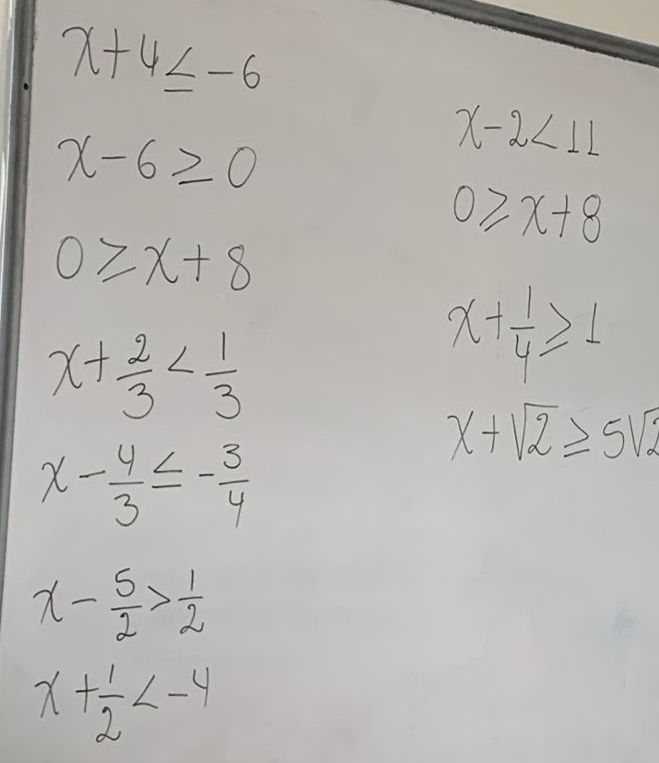 x+4≤-6
x-6≥0
0≥x+8
x+2/3<1/3
x-4/3≤-3/4
x-5/2>1/2
x+1/2<-4
x-2<11
0≥x+8
x+1/4≥1
x+√2≥5√2